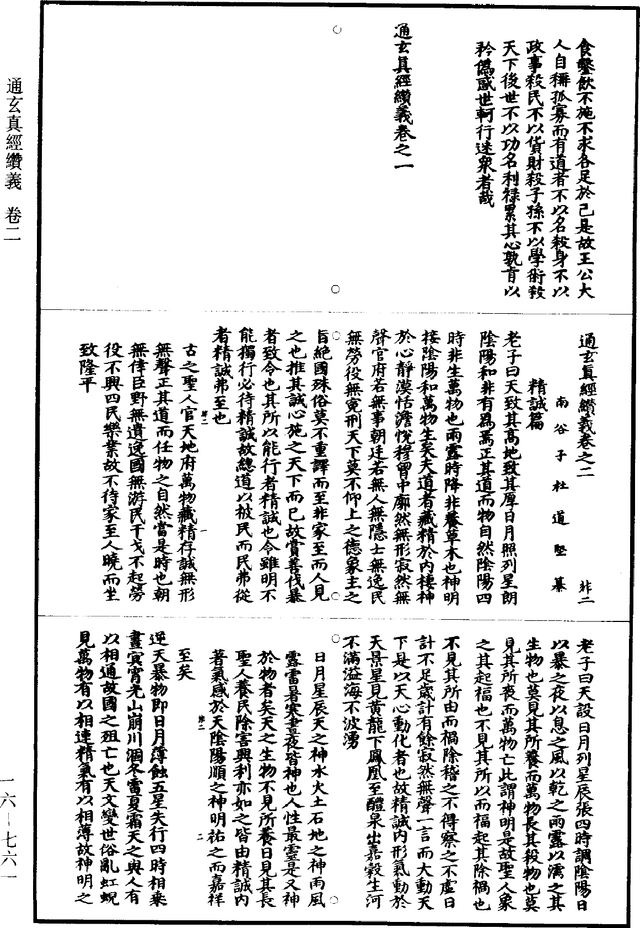 通玄真經纘義 卷二
一六—七六一
食鑿飲不施不求各足於己是故王公大
人自稱孤寡而有道者不以名殺身不以
政事殺民不以貨財殺子孫不以學術殺
天下後世不以功名利祿累其心孰肯以
矜僞惑世軻行迷衆者哉
通玄真經纘義卷之一
通玄真經纘義卷之二
南谷子杜道堅纂
精誠篇
老子曰天致其高地致其厚日月照列星朗
陰陽和非有爲焉正其道而物自然陰陽四
時非生萬物也雨露時降非養草木也神明
接陰陽和萬物生矣夫道者藏精於內棲神
於心靜漠恬澹悅穆胷中廓然無形寂然無
聲官府若無事朝廷若無人無隱士無逸民
無勞役無冤刑天下莫不仰上之德象主之
旨絕國殊俗莫不重譯而至非家至而人見
之也推其誠心施之天下而已故賞善伐暴
者致令也其所以能行者精誠也令雖明不
能獨行必待精誠故總道以被民而民弗從
者精誠弗至也
古之聖人官天地府萬物藏精存誠無形
無聲正其道而任物之自然當是時也朝
無倖臣野無遺逸國無游民干戈不起勞
役不興四民樂業故不待家至人曉而坐
致隆平
老子曰天設日月列星辰張四時調陰陽日
以暴之夜以息之風以乾之雨露以濡之其
生物也莫見其所養而萬物長其殺物也莫
見其所喪而萬物亡此謂神明是故聖人象
之其起福也不見其所以而福起其除禍也
不見其所由而禍除稽之不得察之不虛日
計不足歲計有餘寂然無聲一言而大動天
下是以天心動化者也故精誠內形氣動於
天景星見黃龍下鳳凰至醴泉出嘉穀生河
不滿溢海不波湧
日月星辰天之神水火土石地之神雨風
露雷暑寒晝夜皆神也人性最靈是又神
於物者矣天之生物不見所養日見其長
聖人養民除害興利亦如之皆由精誠內
著氣感於天陰陽順之神明祐之而嘉祥
至矣
逆天暴物即日月薄蝕五星失行四時相乘
晝冥宵光山崩川涸冬雷夏霜天之與人有
以相通故國之殂亡也天文變世俗亂虹蜺
見萬物有以相連精氣有以相薄故神明之